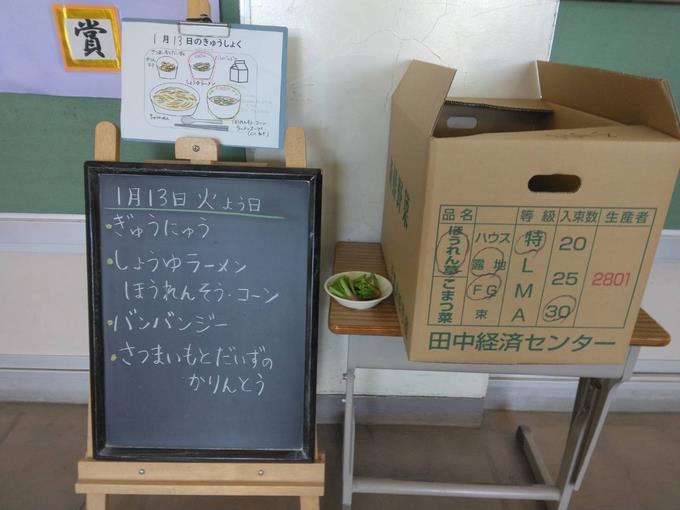 賞
1月13日のきゅうしょく
しょうゆラーメン
1月13日 火よう日
・ぎゅうにゅう
・しょうゆラーメン
ほうれんそう・コーン
・バンバンジー
・さつまいもとだいずの
かりんとう
品名 等級 入束数 生産者
ほうれん草 こまつ菜
ハウス 露地 FG 束
特 L M A
20 25 30
2801
田中経済センター